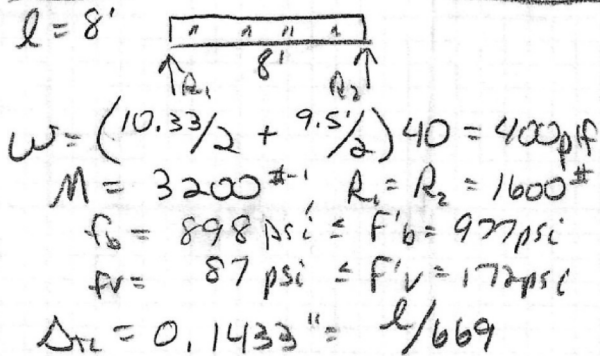 l = 8'
8'
R1 R2
w = (10.33/2 + 9.5'/2) 40 = 400 plf
M = 3200 #-' R1 = R2 = 1600 #
fb = 898 psi ≤ F'b = 977 psi
fv = 87 psi ≤ F'v = 172 psi
ΔTL = 0.1433" = l/669